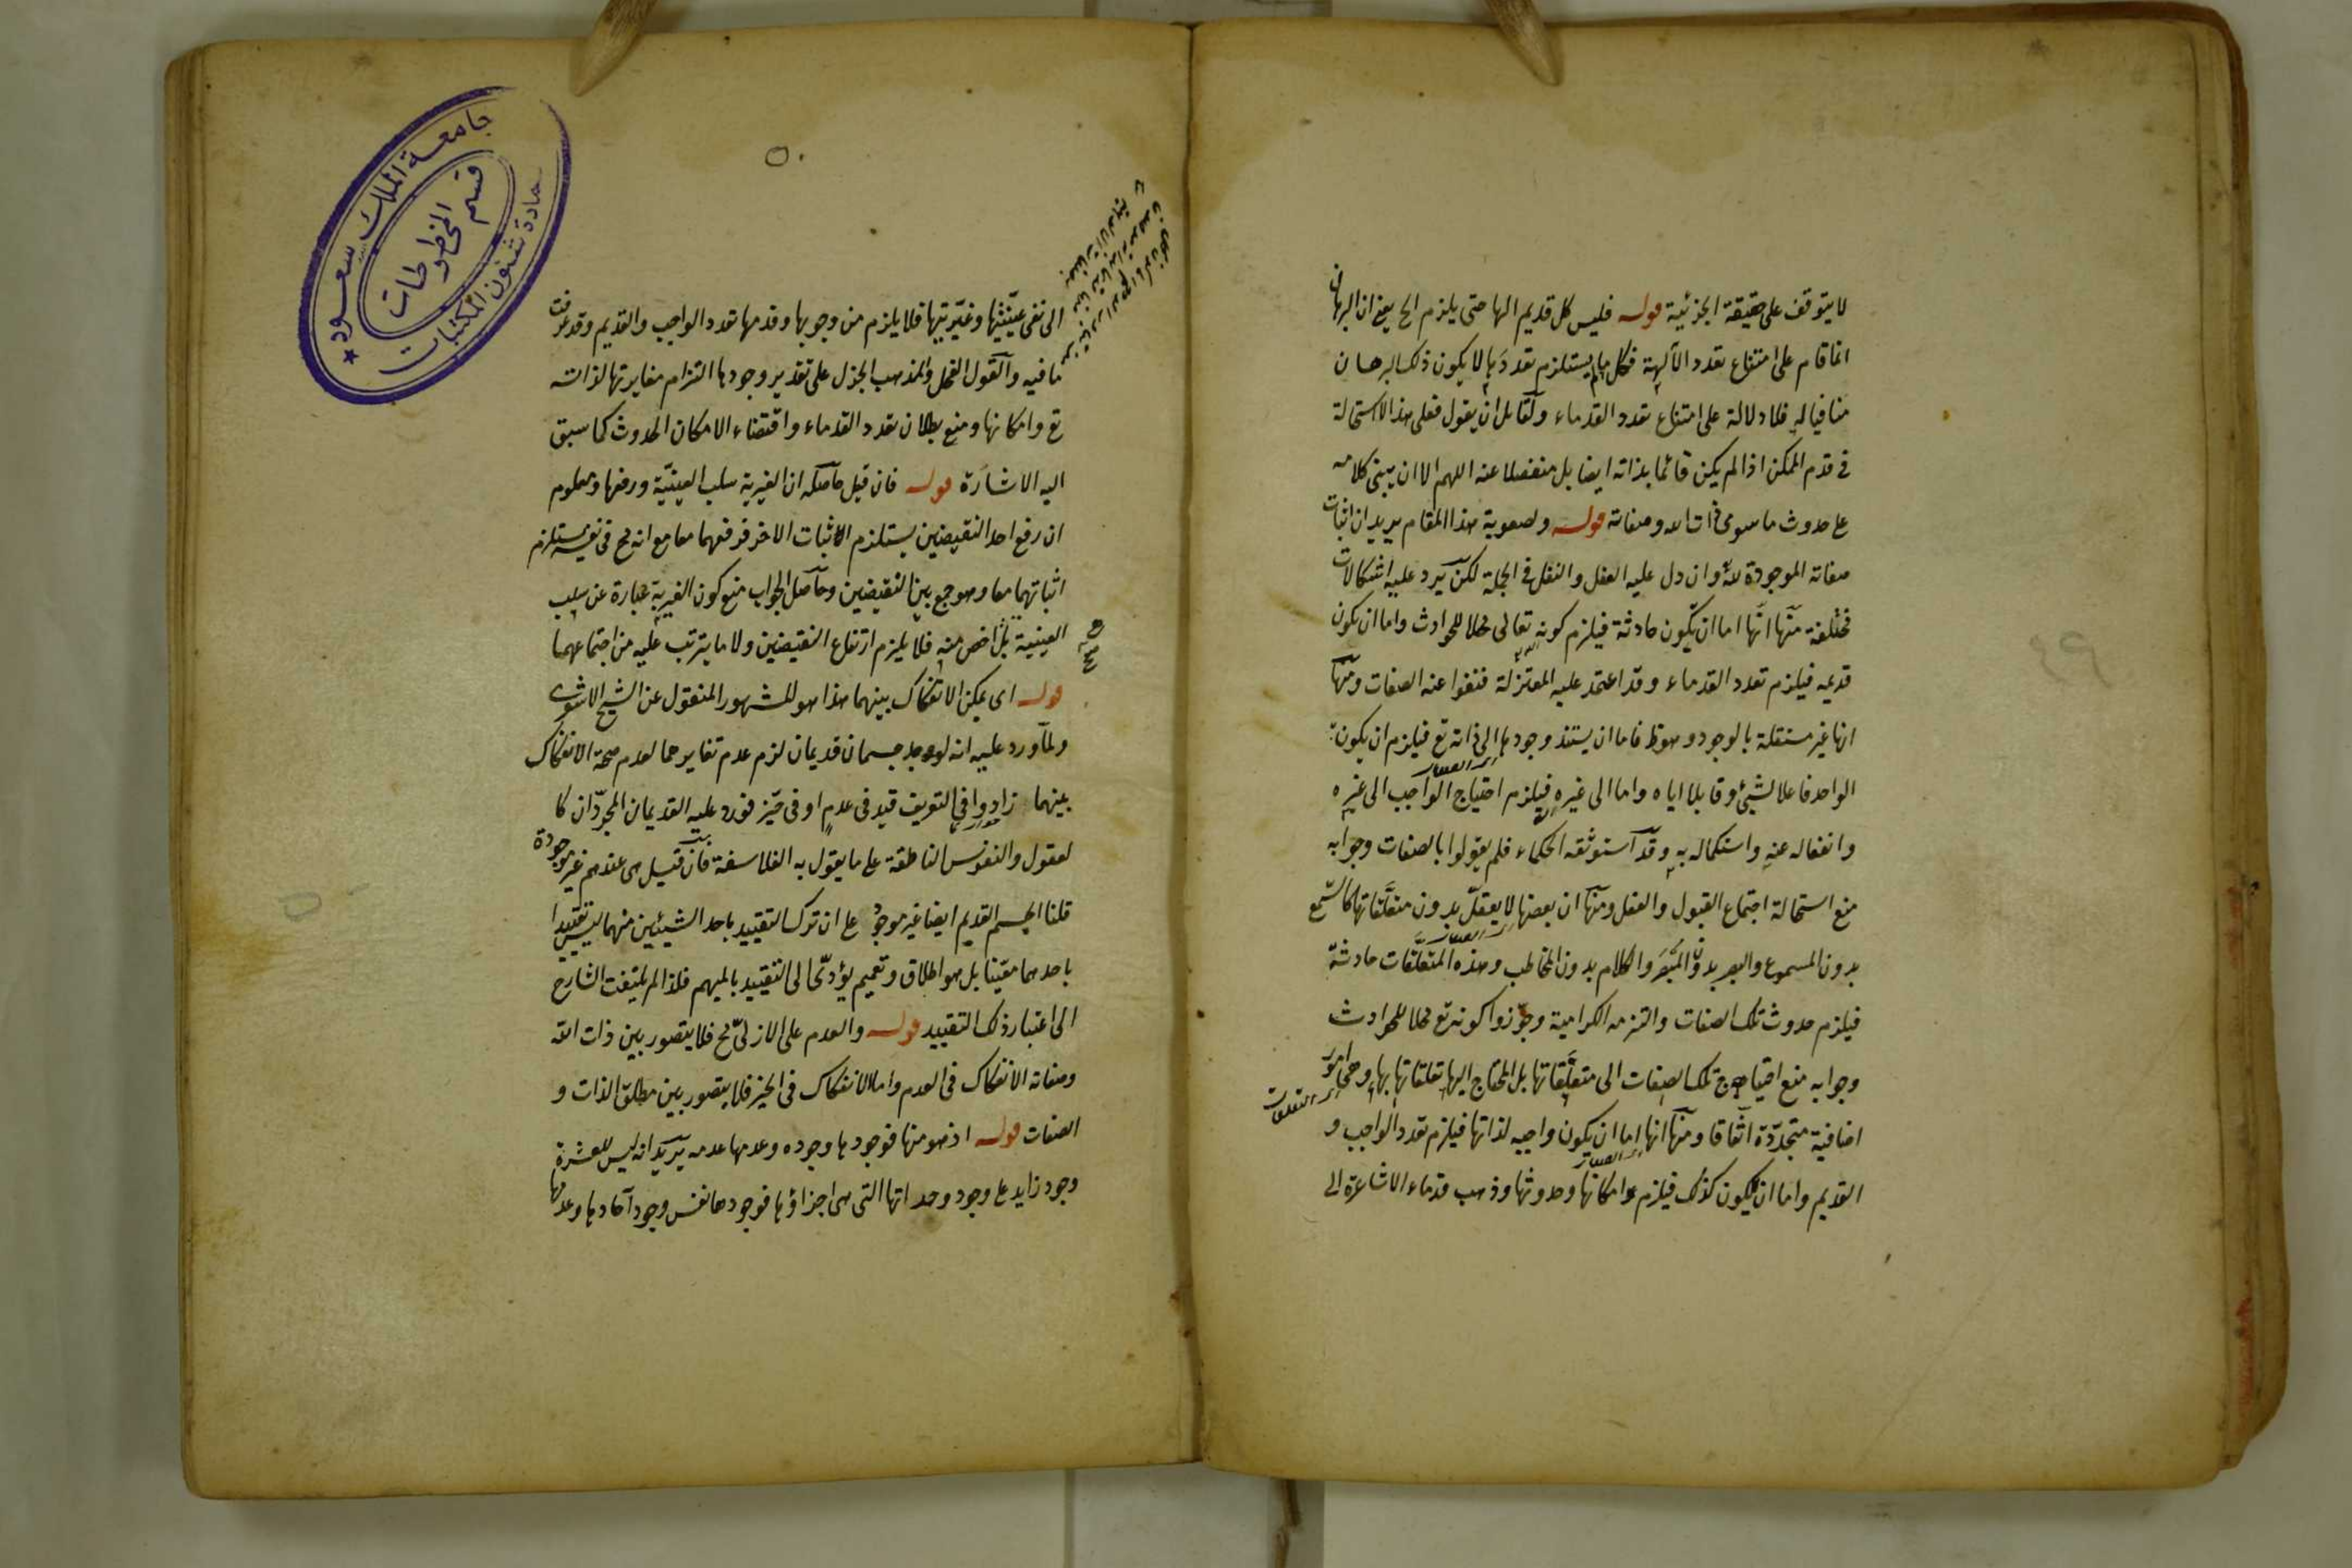 لا يتوقف على حقيقة الجزئية قوله فليس كل قديم الها حتى يلزم الخ يعني ان البرهان
انما قام على امتناع تعدد الآلهة فكل ما لم يستلزم تعددها لا يكون ذلك البرهان
منافيا له فلا دلالة على امتناع تعدد القدماء ولقائل ان يقول فعلى هذا لا استحالة
في قدم الممكن اذا لم يكن قائما بذاته ايضا بل منفصلا عنه اللهم الا ان يبنى كلامه
على حدوث ما سوى ذات الله وصفاته قوله ولصعوبة هذا المقام يريد ان اثبات
صفاته الموجودة له وان دل عليه العقل والنقل في الجملة لكن يرد عليه اشكالات
مختلفة منها انها اما ان يكون حادثة فيلزم كونه تعالى محلا للحوادث واما ان يكون
قديمه فيلزم تعدد القدماء وقد اعتمد عليه المعتزلة فنفوا عنه الصفات ومنها
انها غير مستقلة بالوجود وهو ظ فاما ان يستند وجودها الى ذاته تع فيلزم ان يكون
الواحد فاعلا لشيئ وقابلا اياه واما الى غيره فيلزم احتياج الواجب الى غيره
وانفعاله عنه واستكماله به وقد استوثقه الحكماء فلم يقولوا بالصفات وجوابه
منع استحالة اجتماع القبول والفعل ومنها ان بعضها لا يعقل بدون متعلقاتها كالسمع
بدون المسموع والبصر بدون المبصر والكلام بدون المخاطب وهذه المتعلقات حادثة
فيلزم حدوث تلك الصفات والتزمه الكرامية وجوزوا كونه تع محلا للحوادث
وجوابه منع احتياج تلك الصفات الى متعلقاتها بل المحتاج اليها تعلقاتها بها وهي امور
اضافية متجددة اتفاقا ومنها انها اما ان يكون واجبه لذاتها فيلزم تعدد الواجب و
القديم واما ان لا يكون كذلك فيلزم امكانها وحدوثها وذهب قدماء الاشاعرة الى
٤٩
٥٠
الى نفى عينيتها وغيريتها فلا يلزم من وجوبها وقدمها تعدد الواجب والقديم وقد عرفت
ما فيه والقول الفحل والمذهب الجزل على تقدير وجودها التزام مغايرتها لذاته
تع وامكانها ومنع بطلان تعدد القدماء واقتضاء الامكان الحدوث كما سبق
اليه الاشارة قوله فان قيل حاصله ان الغيرية سلب العينية ورفعها ومعلوم
ان رفع احد النقيضين يستلزم اثبات الاخر فرفعهما معا مع انه مح في نفسه يستلزم
اثباتهما معا وهو جمع بين النقيضين وحاصل الجواب منع كون الغيرية عبارة عن سلب
العينية بل اخص منه فلا يلزم ارتفاع النقيضين ولا ما يترتب عليه من اجتماعهما
قوله اى يمكن الانفكاك بينهما هذا هو المشهور المنقول عن الشيخ الاشعري
ولما ورد عليه انه لو وجد جسمان قديمان لزم عدم تغايرهما لعدم صحة الانفكاك
بينهما زادوا في التعريف قيد في عدم او في حيز فورد عليه القديمان المجردان كا
لعقول والنفوس الناطقة على ما يقول به الفلاسفة فان قيل هى عندهم غير موجودة
قلنا الجسم القديم ايضا غير موجود على ان ترك التقييد باحد الشيئين منهما ليس تقييدا
باحدهما معينا بل هو اطلاق وتعميم يؤدى الى التقييد بالمبهم فلذا لم يلتفت الشارح
الى اعتبار ذلك التقييد قوله والعدم على الازلي مح فلا يتصور بين ذات الله
وصفاته الانفكاك في العدم واما الانفكاك في الحيز فلا يتصور بين مطلق الذات و
الصفات قوله اذ هو منها فوجودها وجوده وعدمها عدمه يريد انه ليس للعشرة
وجود زايد على وجود وحداتها التي هى اجزاؤها فوجودها نفس وجود آحادها وعدمها
جامعة الملك سعود
قسم المخطوطات
عمادة شئون المكتبات